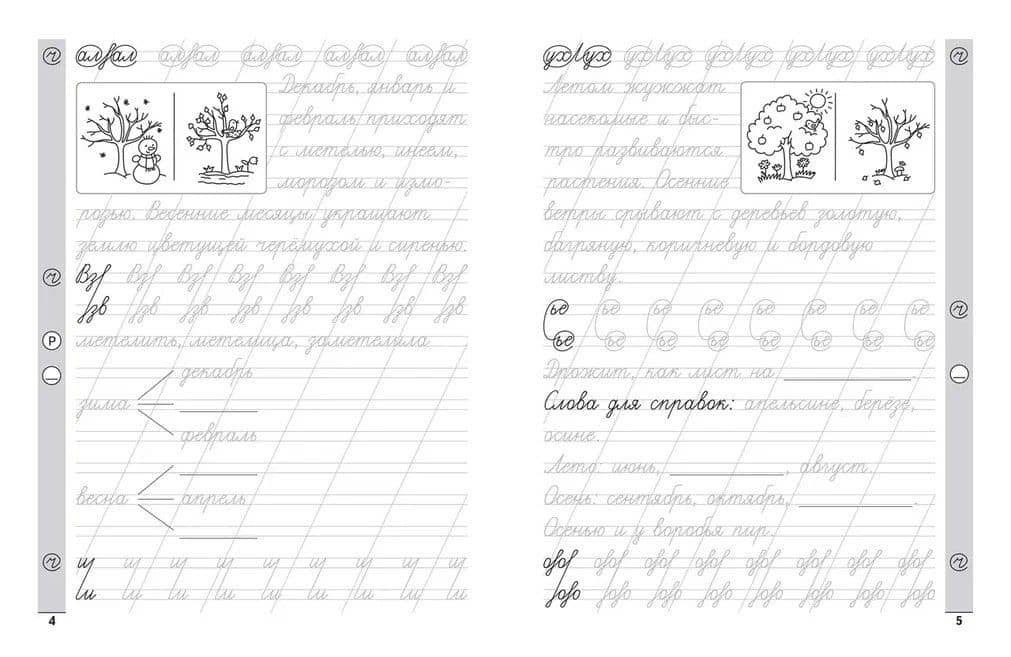 ч алфал алфал алфал алфал алфал
Декабрь, январь и
февраль приходят
с метелью, инеем,
морозом и измо-
розью. Весенние месяцы украшают
землю цветущей черёмухой и сиренью.
ч Взf Взf Взf Взf Взf Взf Взf Взf
fзв fзв fзв fзв fзв fзв fзв fзв
Р метелить, метелица, заметелила
декабрь
зима ______
февраль
______
весна апрель
______
ч щ щ щ щ щ щ щ щ щ
ц ц ц ц ц ц ц ц ц
4
ухlух ухlух ухlух ухlух ухlух ч
Летом жужжат
насекомые и быс-
тро развиваются
растения. Осенние
ветры срывают с деревьев золотую,
багряную, коричневую и бордовую
листву.
ье ье ье ье ье ье ье ье ч
ье ье ье ье ье ье ье ье
Дрожит, как лист на ______.
Слова для справок: апельсине, берёзе,
осине.
Лето: июнь, ______, август.
Осень: сентябрь, октябрь, ______.
Осенью и у воробья пир.
ofof ofof ofof ofof ofof ofof ofof ofof ч
fofo fofo fofo fofo fofo fofo fofo fofo
5